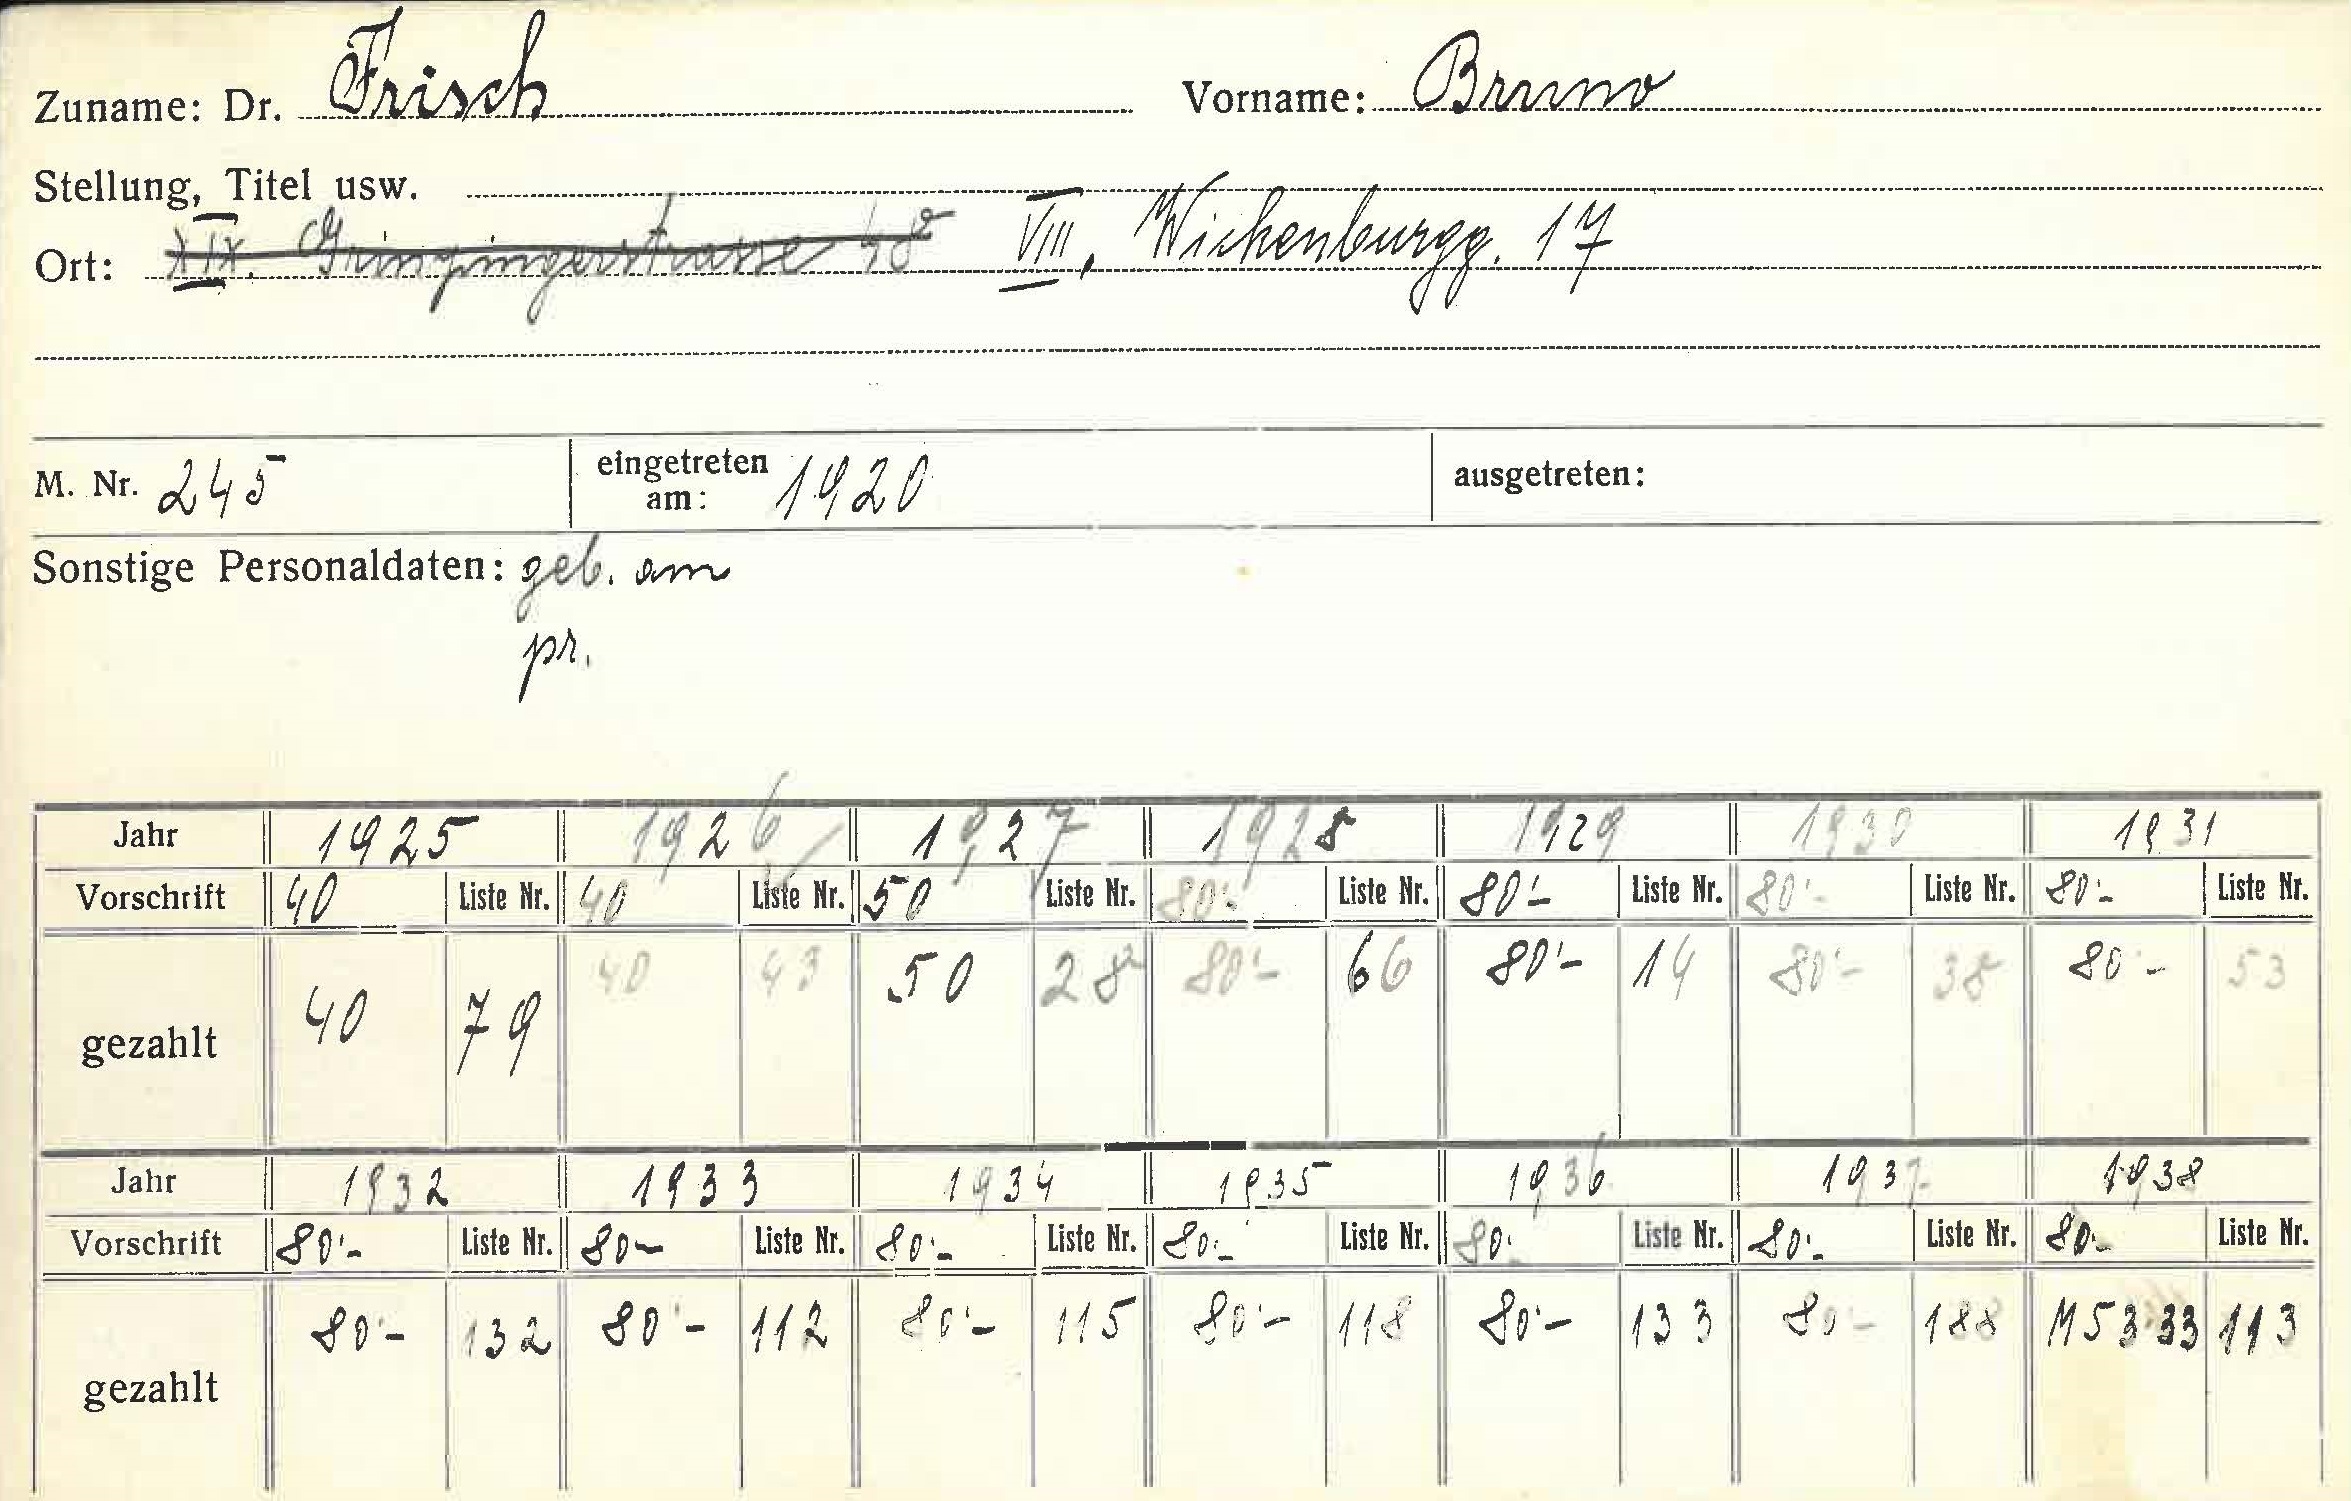 Zuname: Dr. Frisch Vorname: Bruno
Stellung, Titel usw.
Ort: XIX. Grinzingerstrasse 48 VIII, Wickenburgg. 17
M. Nr. 245 eingetreten am: 1920 ausgetreten:
Sonstige Personaldaten: geb. am
pr.
Jahr 1925 1926 1927 1928 1929 1930 1931
Vorschrift 40 Liste Nr. 40 Liste Nr. 50 Liste Nr. 80·- Liste Nr. 80·- Liste Nr. 80·- Liste Nr. 80·- Liste Nr.
gezahlt 40 79 40 43 50 28 80·- 66 80·- 14 80·- 38 80·- 53
Jahr 1932 1933 1934 1935 1936 1937 1938
Vorschrift 80·- Liste Nr. 80·- Liste Nr. 80·- Liste Nr. 80·- Liste Nr. 80·- Liste Nr. 80·- Liste Nr. 80·- Liste Nr.
gezahlt 80·- 132 80·- 112 80·- 115 80·- 118 80·- 133 80·- 188 M 53 33 113